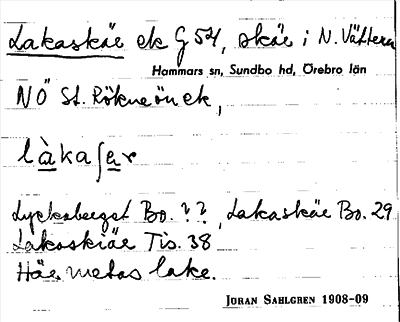 Lakaskäe ek G 54, skäe i N. Vättern
Hammars sn, Sundbo hd, Örebro län
NÖ St. Röknön ek,
làkaʃar
Bo. ??, Lakaskäe Bo. 29
Lakaskiäe Tis. 38
Häe metas lake.
JÖRAN SAHLGREN 1908-09